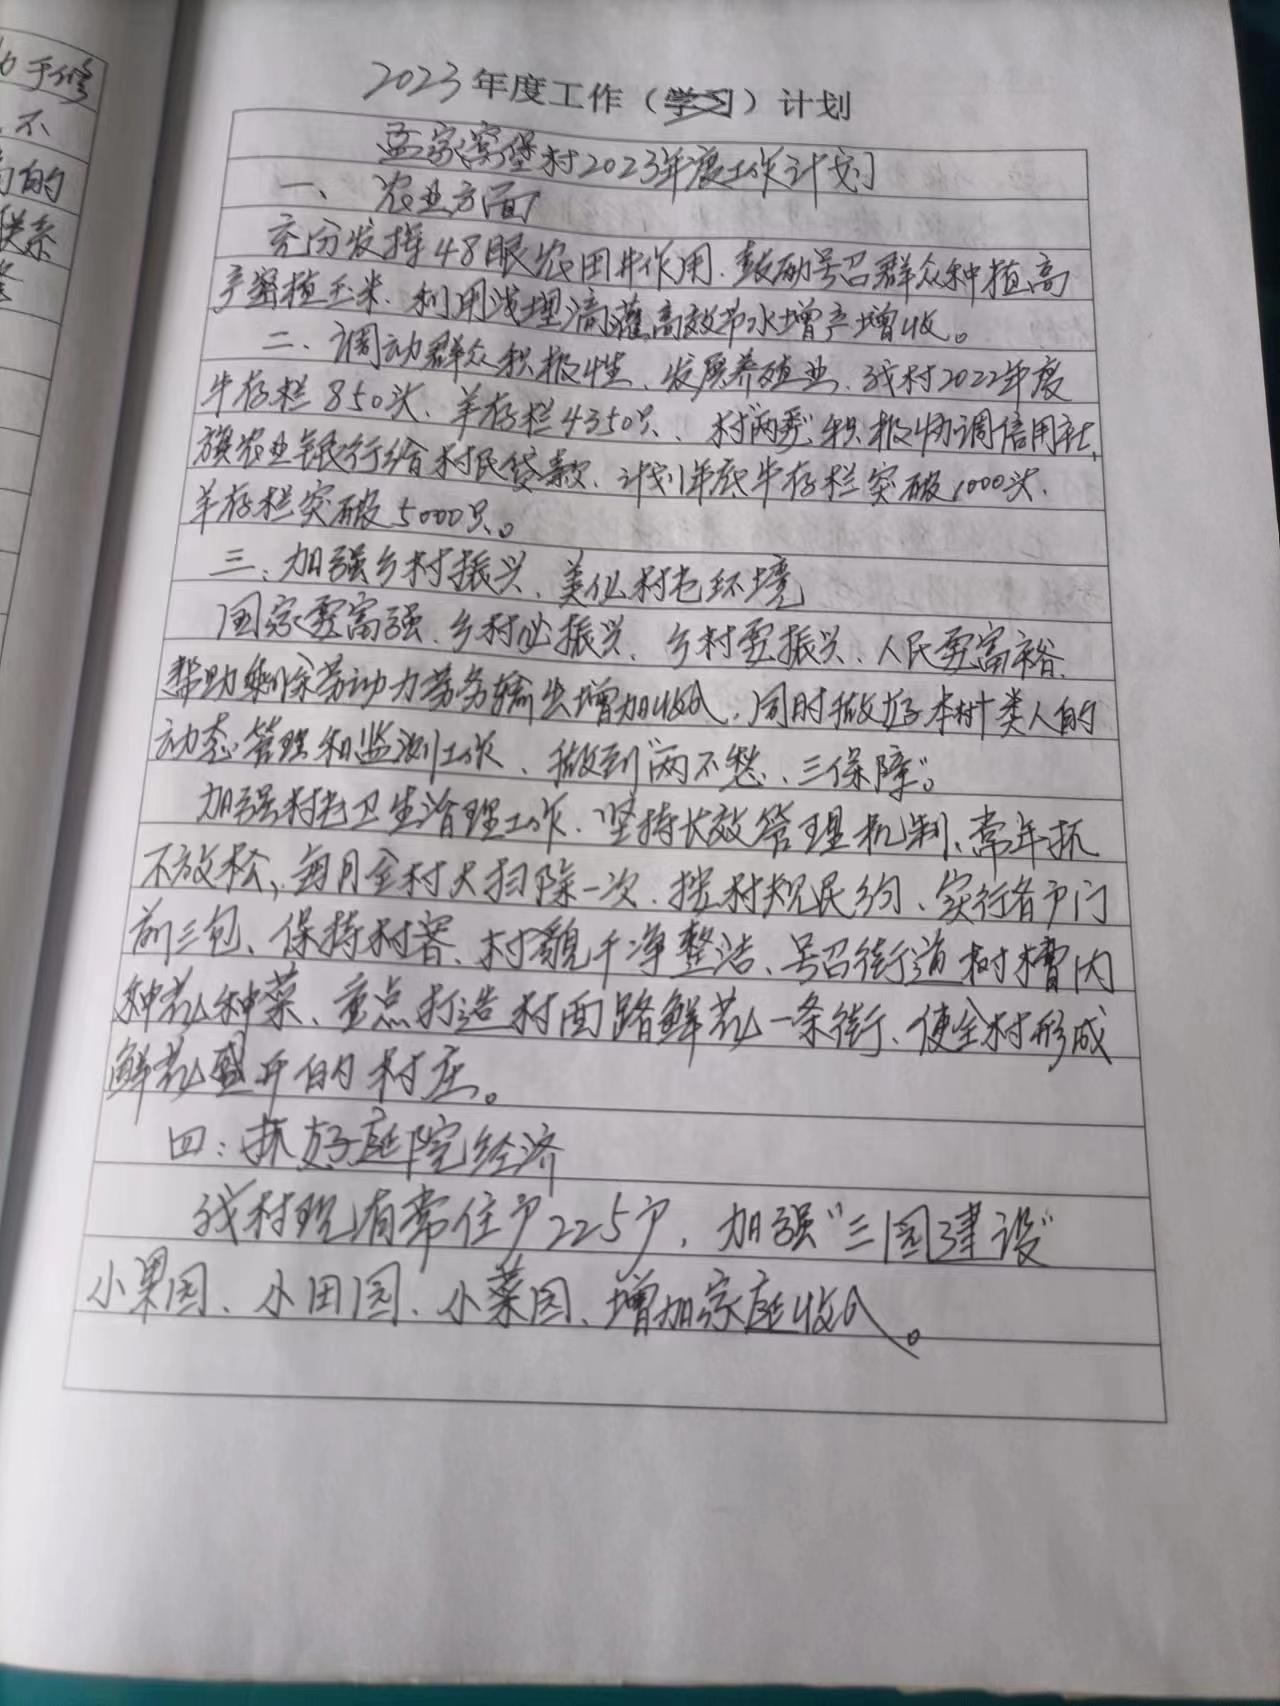 力于修
不
的
联系
2023年度工作（学习）计划
孟家窝堡村2023年度工作计划
一、农业方面
充分发挥48眼农田井作用、鼓励号召群众种植高
产密植玉米、利用浅埋滴灌高效节水增产增收。
二、调动群众积极性、发展养殖业、我村2022年度
牛存栏850头、羊存栏4350只、村"两委"积极协调信用社,
旗农业银行给村民贷款、计划年底牛存栏突破1000头、
羊存栏突破5000只。
三、加强乡村振兴、美化村屯环境
国家要富强、乡村必振兴、乡村要振兴、人民要富裕、
帮助剩余劳动力劳务输出增加收入、同时做好本村十类人的
动态管理和监测工作、做到"两不愁、三保障"。
加强村屯卫生治理工作、坚持长效管理机制、常年抓
不放松、每月全村大扫除一次、按村规民约、实行各户门
前三包、保持村容、村貌干净整洁、号召街道树槽内
种花种菜、重点打造村西路鲜花一条街、使全村形成
鲜花盛开的村庄。
四：抓好庭院经济
我村现有常住户225户，加强"三园建设"
小果园、小田园、小菜园、增加家庭收入。